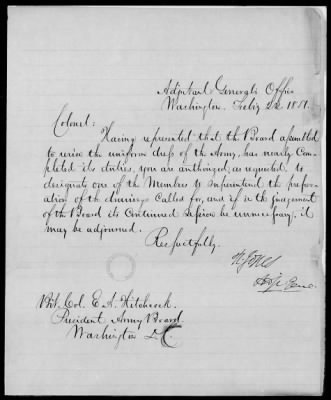 Adjutant General's Office
Washington. Feb'y 22 1851.
Colonel:
Having represented that the Board appointed
to revise the uniform dress of the Army, has nearly Com-
pleted its duties, you are authorized, as requested, to
designate one of the Members to Superintend the prepar-
ation of the drawings Called for, and if in the judgement
of the Board its Continued Session be unnecessary, it
may be adjourned.
Respectfully.
Adjt. Genl.
Bvt. Col. E. A. Hitchcock.
President Army Board
Washington D.C.